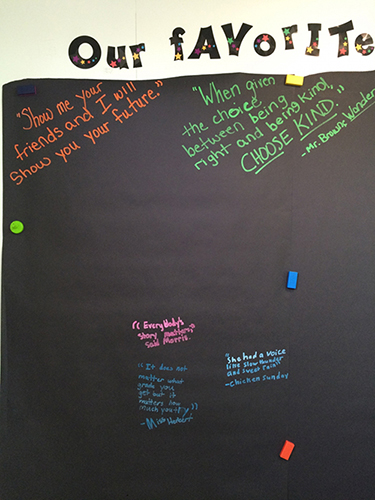 Our fAVorITe
"Show me your
friends and I will
show you your future."
"When given
the choice
between being
right and being kind,
CHOOSE KIND."
-Mr. Browne Wonder
"EveryBody's
story matters,"
said Morris.
"It does not
matter what
grade you
get but it
matters how
much you try"
"She had a voice
like slow thunder
and sweet rain"
-chicken Sunday